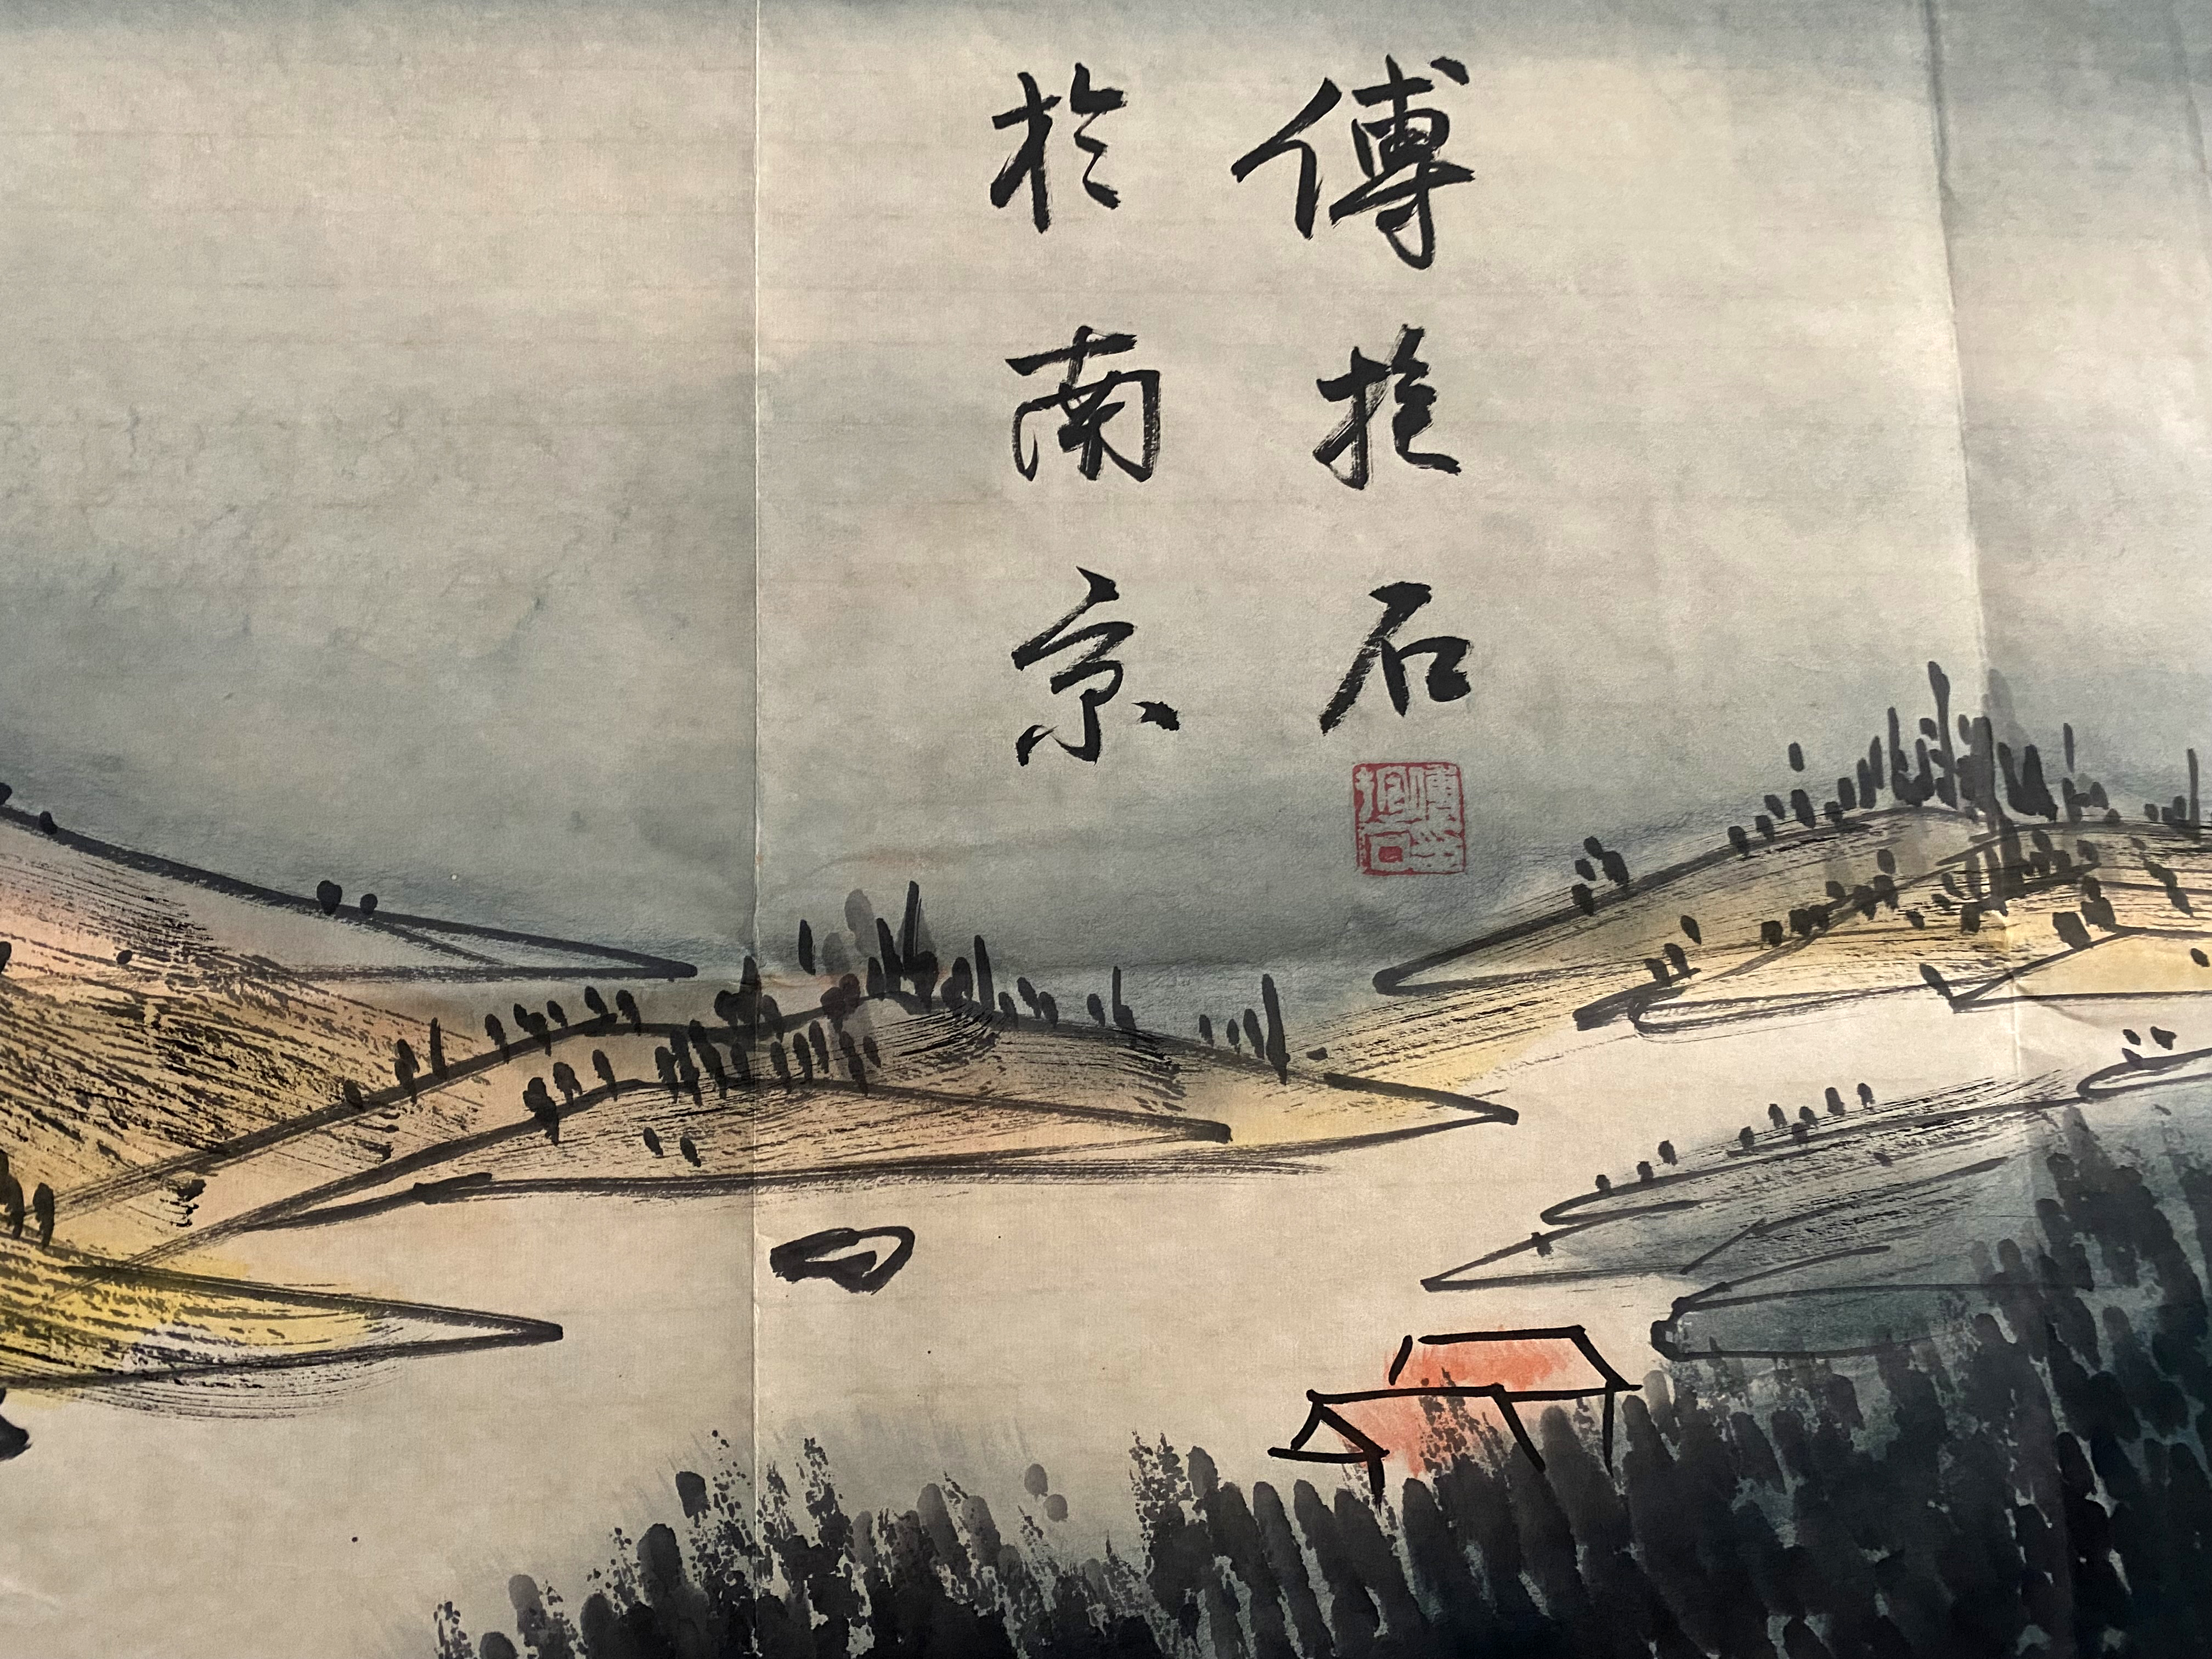 傅抱石
於南京
傅抱石